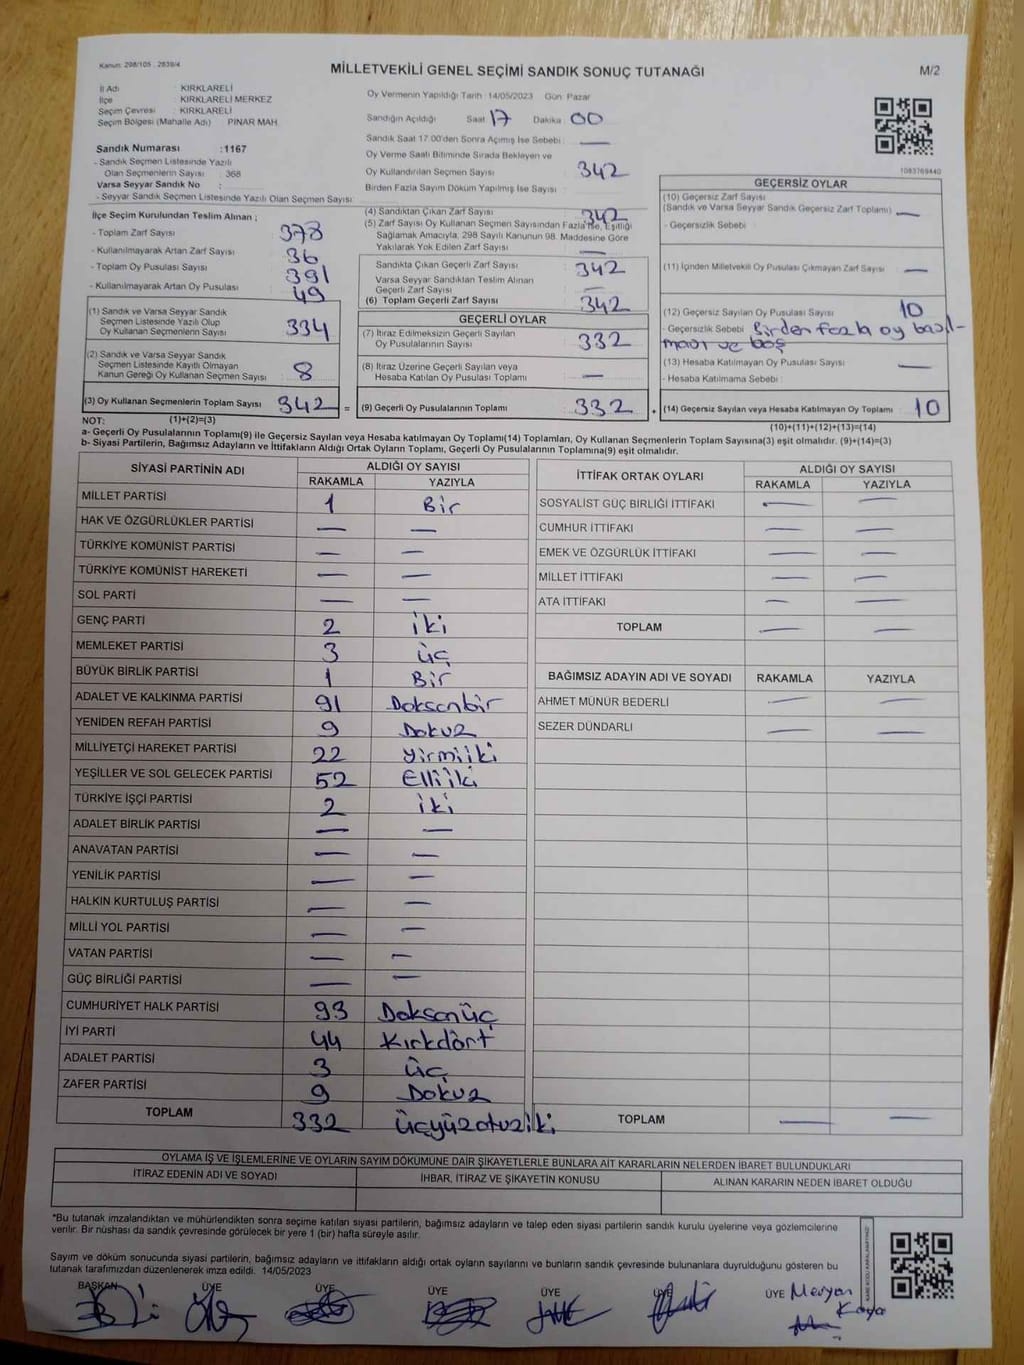 Kanun: 298/105 , 2839/4
MİLLETVEKİLİ GENEL SEÇİMİ SANDIK SONUÇ TUTANAĞI
M/2
İl Adı : KIRKLARELİ
İlçe : KIRKLARELİ MERKEZ
Seçim Çevresi : KIRKLARELİ
Seçim Bölgesi (Mahalle Adı) PINAR MAH.
Oy Vermenin Yapıldığı Tarih :14/05/2023 Gün: Pazar
Sandığın Açıldığı Saat 17 Dakika 00
Sandık Saat 17:00'den Sonra Açımış İse Sebebi : —
Sandık Numarası :1167
- Sandık Seçmen Listesinde Yazılı
Olan Seçmenlerin Sayısı : 368
Varsa Seyyar Sandık No :
- Seyyar Sandık Seçmen Listesinde Yazılı Olan Seçmen Sayısı :
Oy Verme Saati Bitiminde Sırada Bekleyen ve
Oy Kullandırılan Seçmen Sayısı : 342
Birden Fazla Sayım Döküm Yapılmış İse Sayısı :
1083769440
İlçe Seçim Kurulundan Teslim Alınan ;
- Toplam Zarf Sayısı : 378
- Kullanılmayarak Artan Zarf Sayısı : 36
- Toplam Oy Pusulası Sayısı : 391
- Kullanılmayarak Artan Oy Pusulası : 49
(1) Sandık ve Varsa Seyyar Sandık
Seçmen Listesinde Yazılı Olup
Oy Kullanan Seçmenlerin Sayısı : 334
(2) Sandık ve Varsa Seyyar Sandık
Seçmen Listesinde Kayıtlı Olmayan
Kanun Gereği Oy Kullanan Seçmen Sayısı : 8
(3) Oy Kullanan Seçmenlerin Toplam Sayısı : 342 =
(4) Sandıktan Çıkan Zarf Sayısı : 342
(5) Zarf Sayısı Oy Kullanan Seçmen Sayısından Fazla ise, Eşitliği
Sağlamak Amacıyla, 298 Sayılı Kanunun 98. Maddesine Göre
Yakılarak Yok Edilen Zarf Sayısı : —
Sandıkta Çıkan Geçerli Zarf Sayısı : 342
Varsa Seyyar Sandıktan Teslim Alınan
Geçerli Zarf Sayısı : —
(6) Toplam Geçerli Zarf Sayısı : 342
GEÇERLİ OYLAR
(7) İtiraz Edilmeksizin Geçerli Sayılan
Oy Pusulalarının Sayısı : 332
(8) İtiraz Üzerine Geçerli Sayılan veya
Hesaba Katılan Oy Pusulası Toplamı : —
(9) Geçerli Oy Pusulalarının Toplamı : 332
GEÇERSİZ OYLAR
(10) Geçersiz Zarf Sayısı
(Sandık ve Varsa Seyyar Sandık Geçersiz Zarf Toplamı) : —
- Geçersizlik Sebebi :
(11) İçinden Milletvekili Oy Pusulası Çıkmayan Zarf Sayısı : —
(12) Geçersiz Sayılan Oy Pusulası Sayısı : 10
- Geçersizlik Sebebi : Birden fazla oy basıl-
ması ve boş
(13) Hesaba Katılmayan Oy Pusulası Sayısı : —
- Hesaba Katılmama Sebebi :
(14) Geçersiz Sayılan veya Hesaba Katılmayan Oy Toplamı : 10
NOT: (1)+(2)=(3)
(10)+(11)+(12)+(13)=(14)
a- Geçerli Oy Pusulalarının Toplamı(9) ile Geçersiz Sayılan veya Hesaba Katılmayan Oy Toplamı(14) Toplamları, Oy Kullanan Seçmenlerin Toplam Sayısına(3) eşit olmalıdır. (9)+(14)=(3)
b- Siyasi Partilerin, Bağımsız Adayların ve İttifakların Aldığı Ortak Oyların Toplamı, Geçerli Oy Pusulalarının Toplamına(9) eşit olmalıdır.
SİYASİ PARTİNİN ADI ALDIĞI OY SAYISI
RAKAMLA YAZIYLA
MİLLET PARTİSİ 1 Bir
HAK VE ÖZGÜRLÜKLER PARTİSİ — —
TÜRKİYE KOMÜNİST PARTİSİ — —
TÜRKİYE KOMÜNİST HAREKETİ — —
SOL PARTİ — —
GENÇ PARTİ 2 iki
MEMLEKET PARTİSİ 3 üç
BÜYÜK BİRLİK PARTİSİ 1 Bir
ADALET VE KALKINMA PARTİSİ 91 Doksanbir
YENİDEN REFAH PARTİSİ 9 Dokuz
MİLLİYETÇİ HAREKET PARTİSİ 22 yirmiiki
YEŞİLLER VE SOL GELECEK PARTİSİ 52 Elliiki
TÜRKİYE İŞÇİ PARTİSİ 2 iki
ADALET BİRLİK PARTİSİ — —
ANAVATAN PARTİSİ — —
YENİLİK PARTİSİ — —
HALKIN KURTULUŞ PARTİSİ — —
MİLLİ YOL PARTİSİ — —
VATAN PARTİSİ — —
GÜÇ BİRLİĞİ PARTİSİ — —
CUMHURİYET HALK PARTİSİ 93 Doksanüç
İYİ PARTİ 44 Kırkdört
ADALET PARTİSİ 3 üç
ZAFER PARTİSİ 9 Dokuz
TOPLAM 332 üçyüzotuziki
İTTİFAK ORTAK OYLARI ALDIĞI OY SAYISI
RAKAMLA YAZIYLA
SOSYALİST GÜÇ BİRLİĞİ İTTİFAKI — —
CUMHUR İTTİFAKI — —
EMEK VE ÖZGÜRLÜK İTTİFAKI — —
MİLLET İTTİFAKI — —
ATA İTTİFAKI — —
TOPLAM — —
BAĞIMSIZ ADAYIN ADI VE SOYADI RAKAMLA YAZIYLA
AHMET MÜNÜR BEDERLİ — —
SEZER DÜNDARLI — —
TOPLAM — —
OYLAMA İŞ VE İŞLEMLERİNE VE OYLARIN SAYIM DÖKÜMÜNE DAİR ŞİKAYETLERLE BUNLARA AİT KARARLARIN NELERDEN İBARET BULUNDUKLARI
İTİRAZ EDENİN ADI VE SOYADI İHBAR, İTİRAZ VE ŞİKAYETİN KONUSU ALINAN KARARIN NEDEN İBARET OLDUĞU
*Bu tutanak imzalandıktan ve mühürlendikten sonra seçime katılan siyasi partilerin, bağımsız adayların ve talep eden siyasi partilerin sandık kurulu üyelerine veya gözlemcilerine
verilir. Bir nüshası da sandık çevresinde görülecek bir yere 1 (bir) hafta süreyle asılır.
Sayım ve döküm sonucunda siyasi partilerin, bağımsız adayların ve ittifakların aldığı ortak oyların sayılarını ve bunların sandık çevresinde bulunanlara duyrulduğunu gösteren bu
tutanak tarafımızdan düzenlenerek imza edildi. 14/05/2023
KARE KODU KARALAMAYINIZ!
BAŞKAN ÜYE ÜYE ÜYE ÜYE ÜYE ÜYE Meryan
Kaya